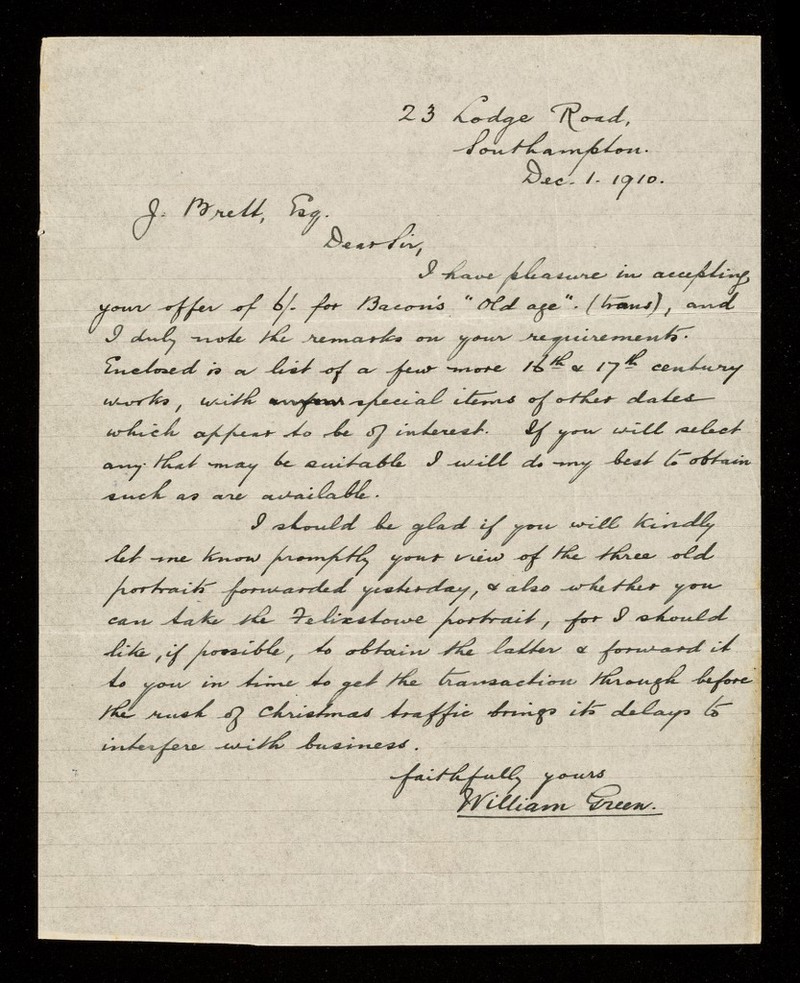 23 Lodge Road,
Southampton.
Dec. 1. 1910.
J. Brett, Esq.
Dear Sir,
I have pleasure in accepting
your offer of 6/- for Bacon's "Old age". (trans), and
I duly note the remarks on your requirements.
Enclosed is a list of a few more 16th & 17th century
works, with special items of other dates
which appear to be of interest. If you will select
any that may be suitable I will do my best to obtain
such as are available.
I should be glad if you will kindly
let me know promptly your view of the three old
portraits forwarded yesterday, & also whether you
can take the Felixstowe portrait, for I should
like, if possible, to obtain the latter & forward it
to you in time to get the transaction through before
the rush of Christmas traffic brings its delays to
interfere with business.
faithfully yours
William Green.